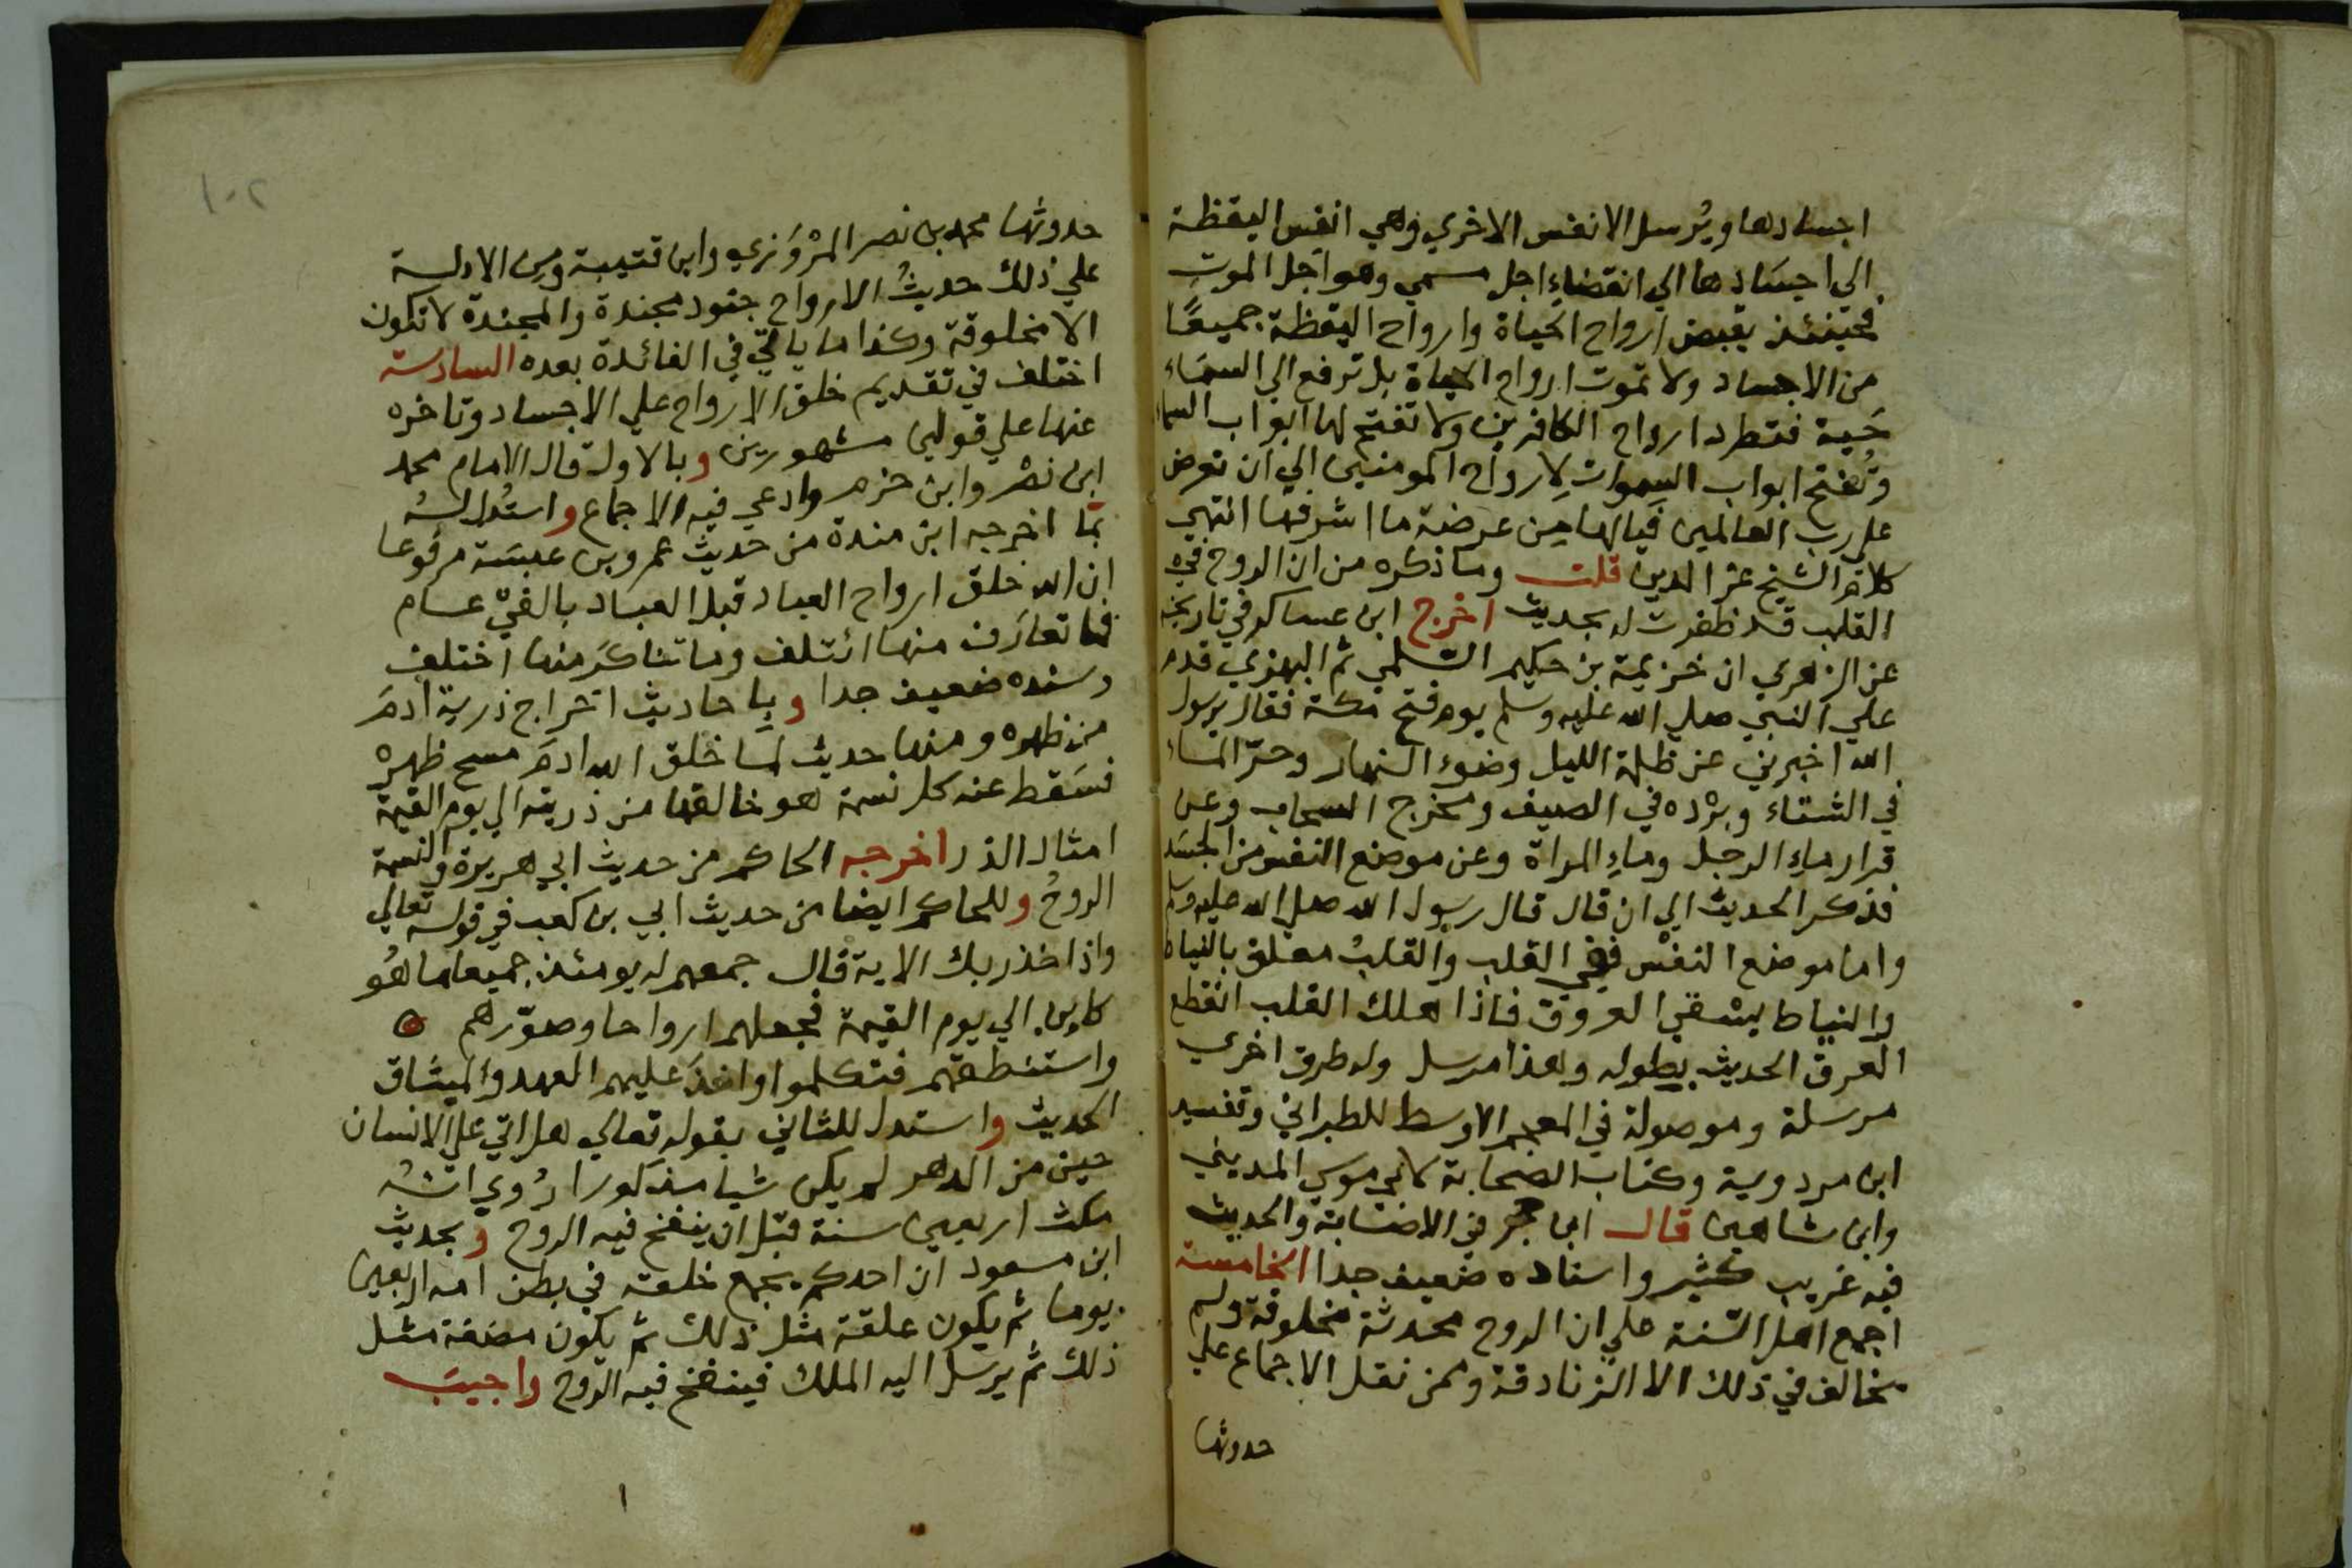 اجسادها ويُرسل الانفس الاخري وهي انفس اليقظة
الي اجسَادها الي انقضاءِ اجل مسمي وهو اجَل الموت
فحينئذ يقبض ارواح الحياة وارواح اليقظة جميعًا
من الاجساد ولا تموت ارواح الحياة بل ترفع الي السمَاء
حَية فتطرد ارواح الكافرين ولا تفتح لها ابواب السما
وتُفتح ابواب السموات لِارواح المومنين الي ان تعرض
علي رب العالمين فيالها مِن عرضة ما اشرفها انتهي
كلام الشيخ عز الدين قلت وما ذكره من ان الروح في
القلب قد ظفرت له بحديث اخرج ابن عساكر في تاريخه
عن الزهري ان خزيمة بن حكيم السّلمي ثم البهزي قدم
علي النبي صلي الله عليه وسلم يوم فتح مكة فقال يرسول
الله اخبرني عن ظلمة الليل وضوء النهار وحرّ الماء
في الشتاء وبرْده في الصيف ومخرج السحاب وعن
قرار ماءِ الرجل وماءِ المراة وعن موضع النفس من الجسَد
فذكر الحديث الي ان قال قال رسول الله صلي الله عليه وسلم
واما موضع النفْس ففي القلب والقلبُ معلق بالنياط
والنياط يسْقي العروق فاذا هلك القلب انقطع
العرق الحديث بطوله وهذا مرسل وله طرق اخري
مرسلة وموصولة في المعجم الاوسط للطبراني وتفسير
ابن مردوية وكتاب الصحابة لابي موسي المديني
وابن شاهين قال ابن حجر في الاصَابة والحديث
فيه غريب كثير واسناده ضعيف جدا الخامسة
اجمع اهل السّنة علي ان الروح محدثة مخلوقة ولم
يخالف في ذلك الا الزنادقة وممن نقل الاجماع علي
حدوثها
١٠٢
حدوثها محمد بن نصر المرْوَزي وابن قتيبة ومن الادلة
علي ذلك حديثُ الارواح جنود مجندة والمجندة لا تكون
الا مخلوقة وكذا ما ياتي في الفائدة بعده السادسة
اختلف في تقديم خلق الارواح علي الاجساد وتاخره
عنها علي قولين مشهورين وبالاول قال الامام محمد
ابن نصْر وابن حزم وادعي فيه الاجماع واستُدل لهُ
بمَا اخرجه ابن مندة من حديث عمرو بن عبسَة مرفوعا
ان الله خلق ارواح العباد قبل العبَاد بالفيْ عام
فما تعارَف منها ائتلف وما تناكرَ منها اختلف
وسنده ضعيف جدا وباحاديث اخراج ذرية ادمَ
من ظهره ومنها حديث لما خلق الله ادمَ مسح ظهره
فسَقط عنه كل نسمة هو خالقها من ذريته الي يوم القيمة
امثال الذر اخرجه الحاكم من حديث ابي هريرة والنسمة
الروحُ وللحاكم ايضا من حديث ابي بن كعب في قوله تعالي
واذ اخذ ربك الاية قال جمعهم له يومئذ جميعا ما هُو
كاين الي يوم القيمة فجعلهم ارواحا وصوّرهم
واستنطقهم فتكلموا واخذَ عليهم العهد والميثاق
الحديث واستدل للثاني بقوله تعالي هل اتي علي الانسان
حين من الدهر لم يكن شيا مذكورا رُوي انهُ
مكث اربعين سنة قبْل ان ينفخ فيه الروح وبحديث
ابن مسعود ان احدكم يجمع خلقه في بطن امه اربعين
يوما ثم يكون علقة مثل ذلك ثم يكون مضغة مثل
ذلك ثم يرسَل اليه الملك فينفخ فيه الروح واجيبَ